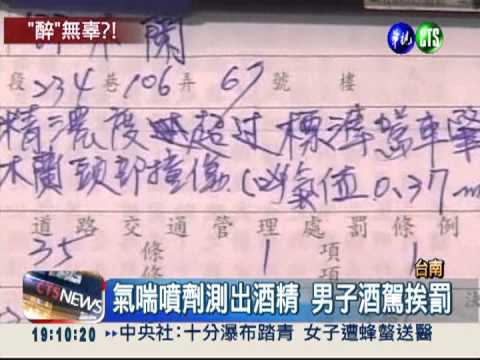 "醉"無辜?!
華視 CTS
木蘭
段234巷106弄67號 樓
精濃度超过標準駕車肇
木蘭頭部撞傷(吹氣值0.37m
道路交通管理處罰條例
35條 1項 1
台南
氣喘噴劑測出酒精 男子酒駕挨罰
CTS NEWS
19:10:20 中央社:十分瀑布踏青 女子遭蜂螫送醫